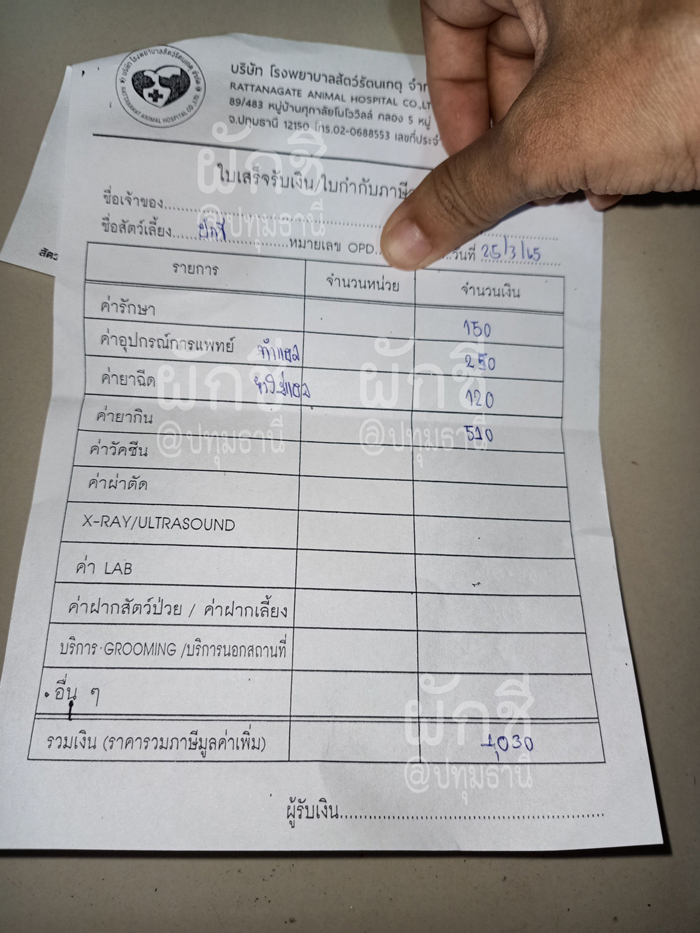 บริษัท โรงพยาบาลสัตว์รัตนเกตุ
RATTANAGATE ANIMAL HOSPITAL CO.,LT
89/483 หมู่บ้านศุภาลัยโนโววิลล์ คลอง 5 หมู่
จ.ปทุมธานี 12150 โทร.02-0688553
ใบเสร็จรับเงิน/ใบกำกับภาษี
ชื่อเจ้าของ
ชื่อสัตว์เลี้ยง ผักชี หมายเลข OPD วันที่ 25/3/65
รายการ จำนวนหน่วย จำนวนเงิน
ค่ารักษา 150
ค่าอุปกรณ์การแพทย์ ทำแผล 250
ค่ายาฉีด 120
ค่ายากิน 510
ค่าวัคซีน
ค่าผ่าตัด
X-RAY/ULTRASOUND
ค่า LAB
ค่าฝากสัตว์ป่วย / ค่าฝากเลี้ยง
บริการ GROOMING /บริการนอกสถานที่
อื่น ๆ
รวมเงิน (ราคารวมภาษีมูลค่าเพิ่ม) 1,030
ผู้รับเงิน
ผักชี
@ปทุมธานี
ผักชี
@ปทุมธานี
ผักชี
@ปทุมธานี
ผักชี
@ปทุมธานี